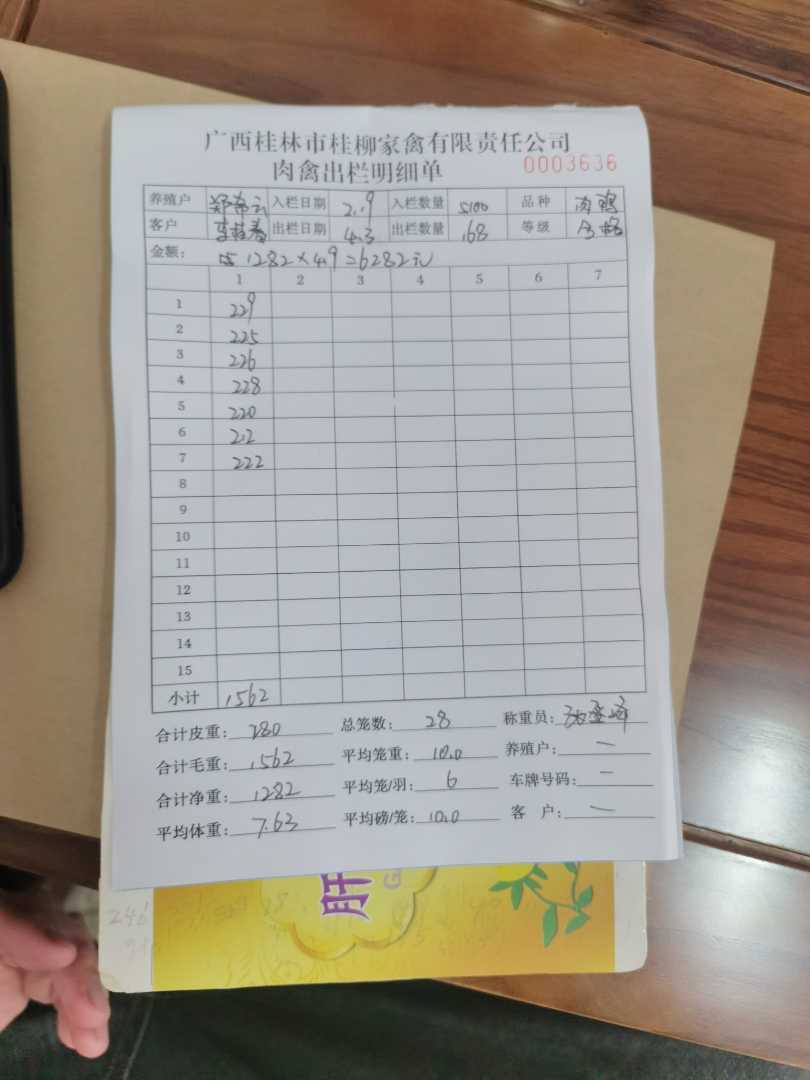 广西桂林市桂柳家禽有限责任公司
肉禽出栏明细单 0003636
养殖户 入栏日期 2.9 入栏数量 5100 品种 肉鸭
客户 李桂春 出栏日期 4.3 出栏数量 168 等级 合格
金额: 1282×4.9=6282元
1 2 3 4 5 6 7
1 229
2 225
3 226
4 228
5 220
6 212
7 222
8
9
10
11
12
13
14
15
小计 1562
合计皮重: 280 总笼数: 28 称重员:
合计毛重: 1562 平均笼重: 10.0 养殖户: 一
合计净重: 1282 平均笼/羽: 6 车牌号码: 一
平均体重: 7.63 平均磅/笼: 10.0 客 户: 一
肝
G
246